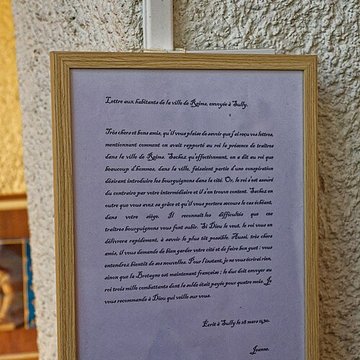 Lettre aux habitants de la ville de Reims, envoyée à Sully.
Très chers et bons amis, qu'il vous plaise de savoir que j'ai reçu vos lettres,
mentionnant comment on avait rapporté au roi la présence de traîtres
dans la ville de Reims. Sachez qu'effectivement, on a dit au roi que
beaucoup d'hommes, dans la ville, faisaient partie d'une conspiration
désirant introduire les bourguignons dans la cité. Or, le roi s'est assuré
du contraire par votre intermédiaire et il s'en trouve content. Sachez en
outre que vous avez sa grâce et qu'il vous portera secours le cas échéant,
dans votre siège. Il reconnaît les difficultés que ces
traîtres bourguignons vous font subir. Si Dieu le veut, le roi vous en
délivrera rapidement, à savoir le plus tôt possible. Aussi, très chers
amis, il vous demande de bien garder votre cité et de faire bon guet ; vous
entendrez bientôt de mes nouvelles. Pour l'instant, je ne vous écrirai rien,
sinon que la Bretagne est maintenant française : le duc doit envoyer au
roi trois mille combattants dont la solde était payée pour quatre mois. Je
vous recommande à Dieu qui veille sur vous.
Écrit à Sully le 28 mars 1430.
Jeanne.